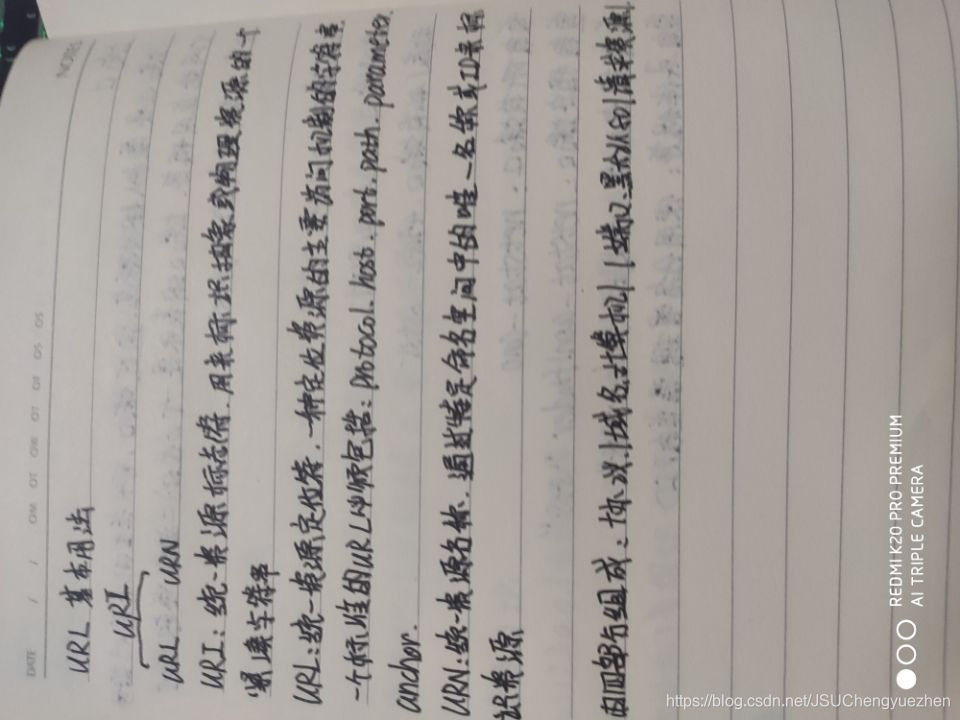 NOTES
DATE / / MO TU WE TH FR SA SU
URL 基本用法
URI
URL URN
URI:统一资源标志符.用来标识抽象或物理资源的一个
紧凑字符串
URL:统一资源定位符.一种定位资源的主要访问机制的字符串.
一个标准的URL必须包括:protocol.host.port.path.parameter.
anchor.
URN:统一资源名称.通过特定命名空间中的唯一名称或ID来标
识资源
由四部分组成:协议/域名,计算机/端口,默认80/请求资源/
REDMI K20 PRO PREMIUM
AI TRIPLE CAMERA
https://blog.csdn.net/JSUChengyuezhen